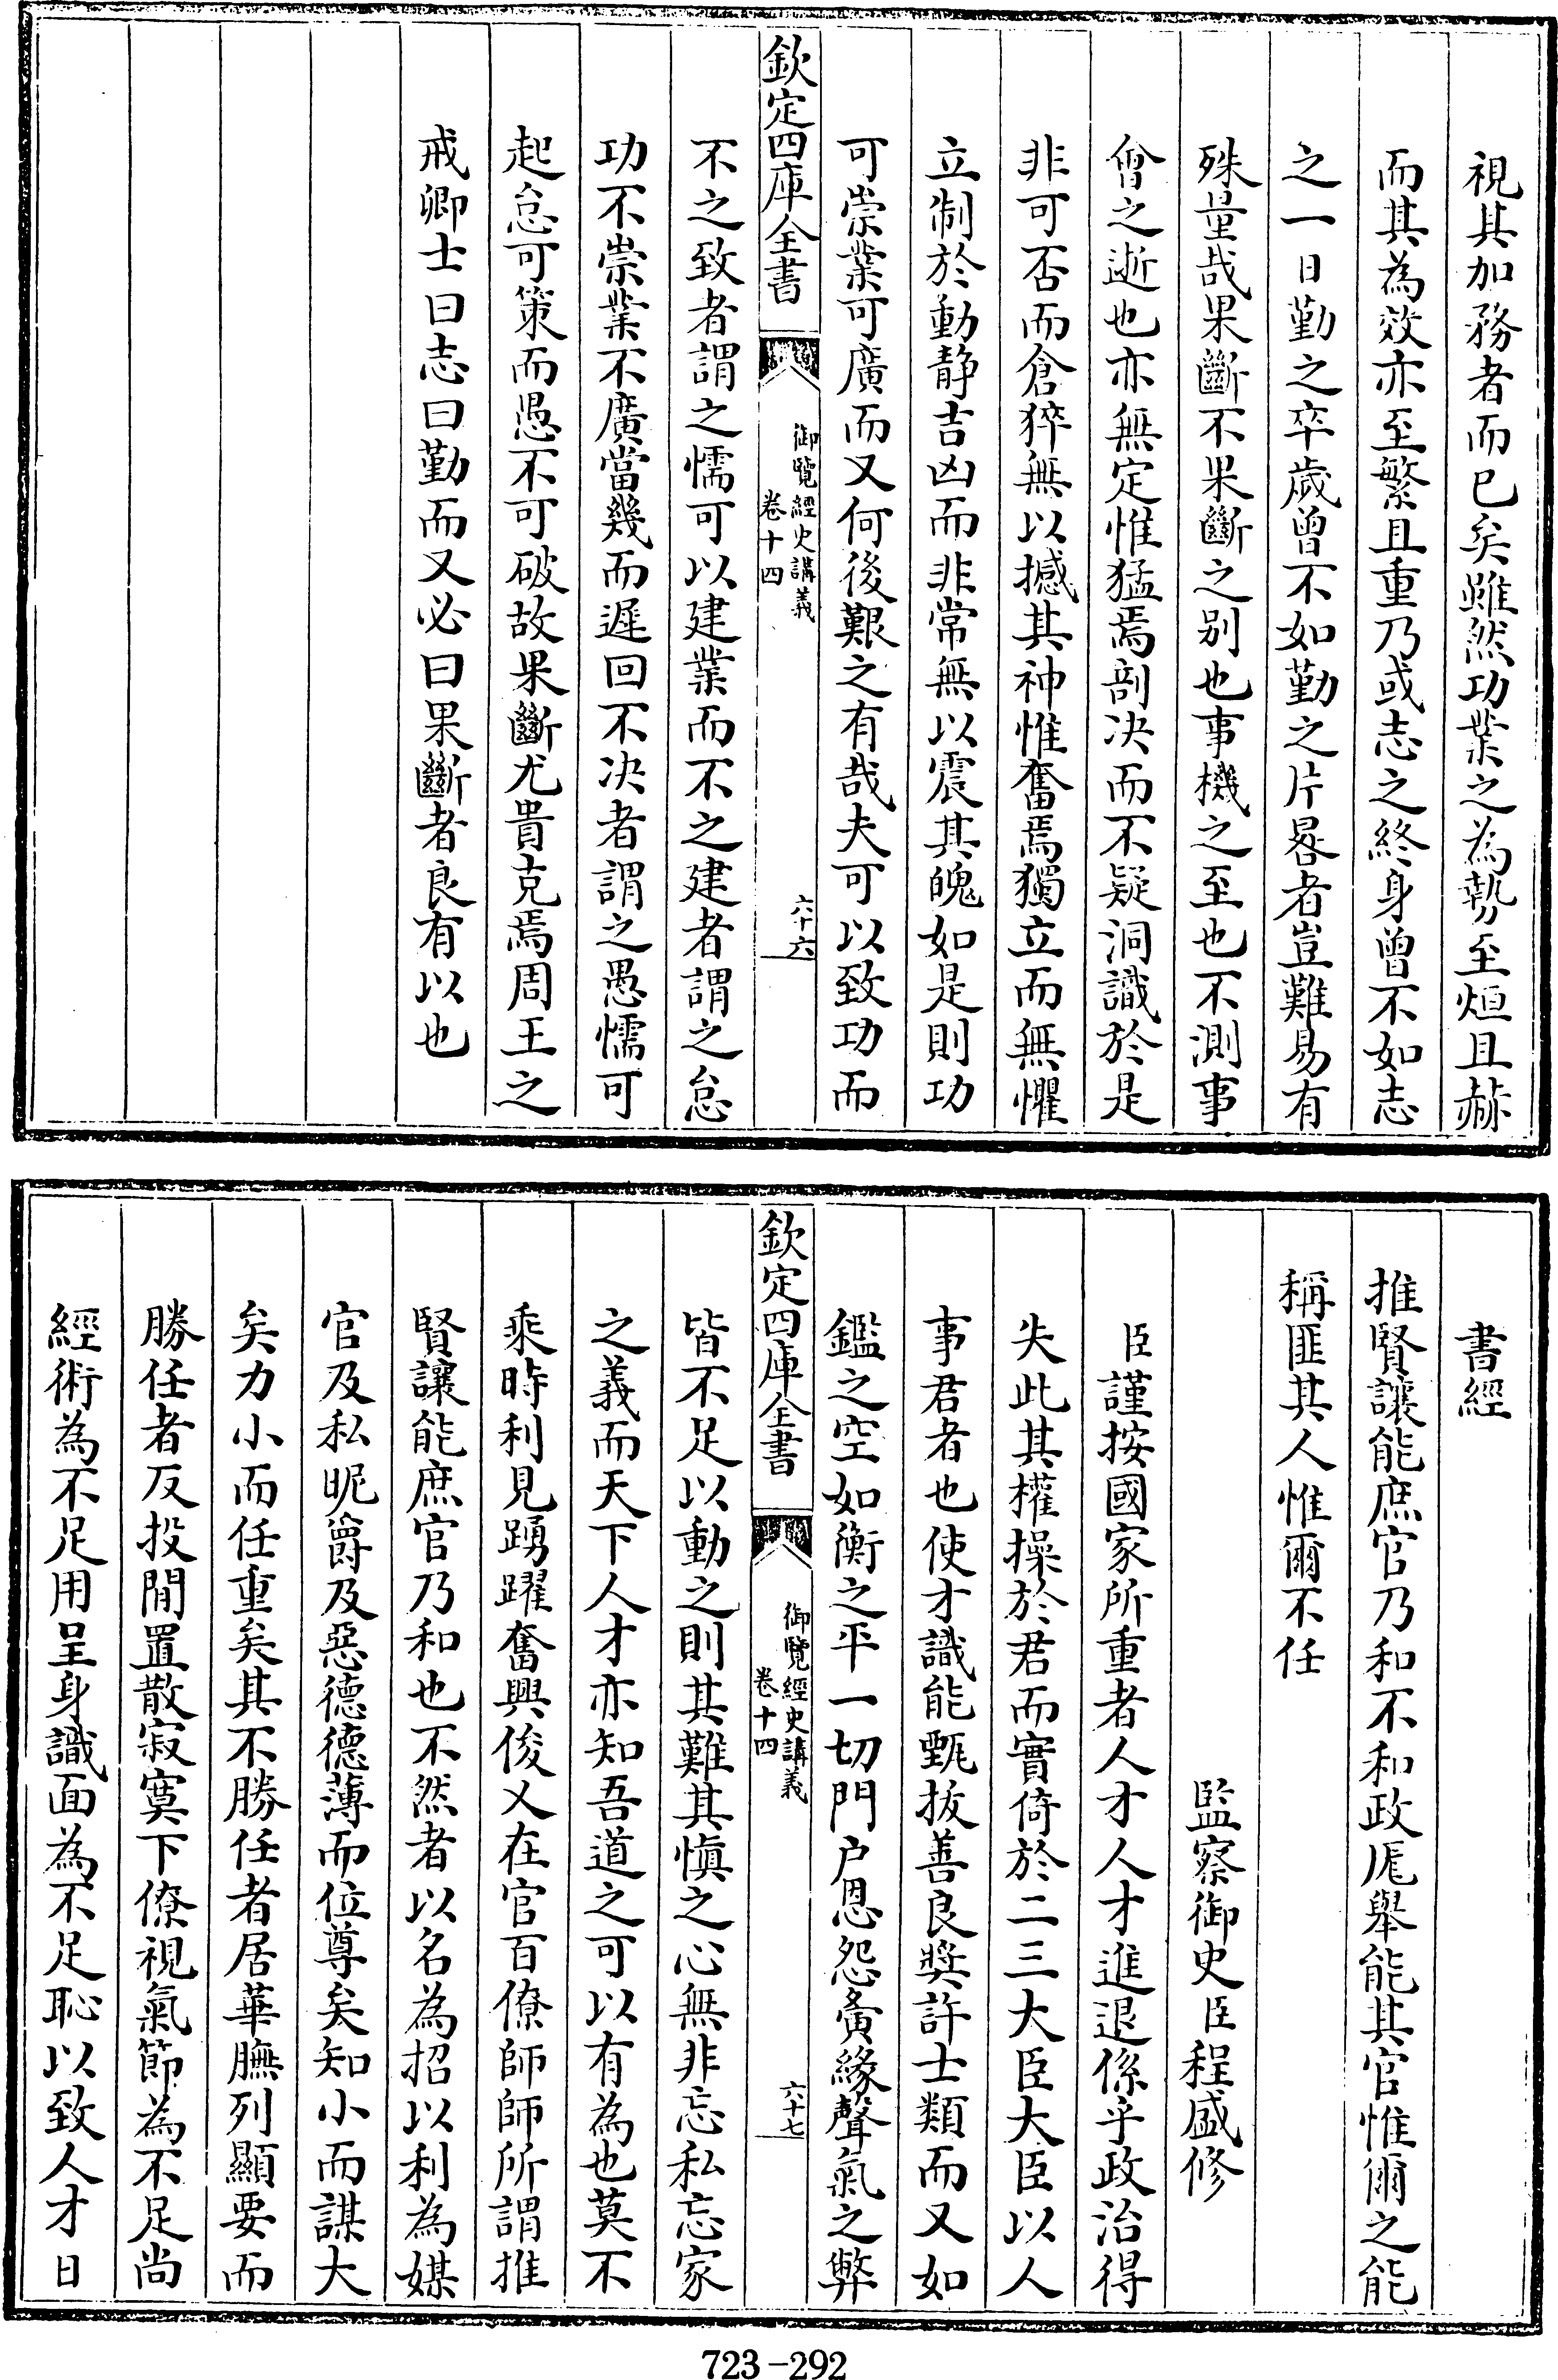 視其加務者而已矣雖然功業之為勢至烜且赫
而其為效亦至繁且重乃或志之終身曾不如志
之一日勤之卒歲曾不如勤之片晷者豈難易有
殊量哉果斷不果斷之别也事機之至也不測事
會之逝也亦無定惟猛焉剖决而不疑洞識於是
非可否而倉猝無以撼其神惟奮焉獨立而無懼
立制於動静吉凶而非常無以震其魄如是則功
可崇業可廣而又何後艱之有哉夫可以致功而
欽定四庫全書
御覽經史講義
卷十四
六十六
不之致者謂之懦可以建業而不之建者謂之怠
功不崇業不廣當幾而遲回不决者謂之愚懦可
起怠可策而愚不可破故果斷尤貴克焉周王之
戒卿士曰志曰勤而又必曰果斷者良有以也
書經
推賢讓能庶官乃和不和政厖舉能其官惟爾之能
稱匪其人惟爾不任
監察御史臣程盛修
臣謹按國家所重者人才人才進退係乎政治得
失此其權操於君而實倚於二三大臣大臣以人
事君者也使才識能甄拔善良奬許士類而又如
鑑之空如衡之平一切門户恩怨夤緣聲氣之弊
欽定四庫全書
御覽經史講義
卷十四
六十七
皆不足以動之則其難其慎之心無非忘私忘家
之義而天下人才亦知吾道之可以有為也莫不
乘時利見踴躍奮興俊乂在官百僚師師所謂推
賢讓能庶官乃和也不然者以名為招以利為媒
官及私昵爵及惡德德薄而位尊矣知小而謀大
矣力小而任重矣其不勝任者居華膴列顯要而
勝任者反投閒置散寂寞下僚視氣節為不足尚
經術為不足用呈身識面為不足恥以致人才日
723-292